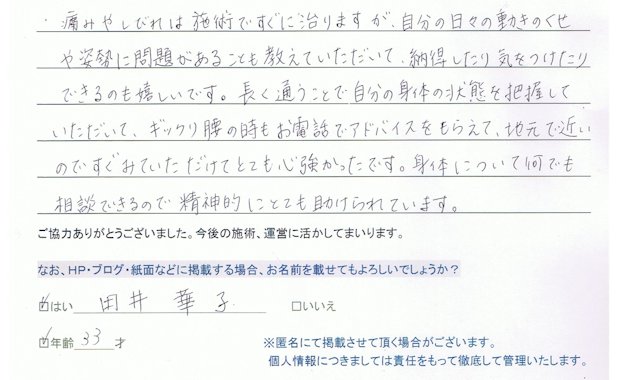 ・痛みやしびれは施術ですぐに治りますが、自分の日々の動きのくせ
や姿勢に問題があることも教えていただいて、納得したり気をつけたり
できるのも嬉しいです。長く通うことで自分の身体の状態を把握して
いただいて、ギックリ腰の時もお電話でアドバイスをもらえて、地元で近い
のですぐみていただけてとても心強かったです。身体について何でも
相談できるので精神的にとても助けられています。
ご協力ありがとうございました。今後の施術、運営に活かしてまいります。
なお、HP・ブログ・紙面などに掲載する場合、お名前を載せてもよろしいでしょうか？
☑はい 田井 華子 □いいえ
☑年齢 33 才 ※匿名にて掲載させて頂く場合がございます。
個人情報につきましては責任をもって徹底して管理いたします。